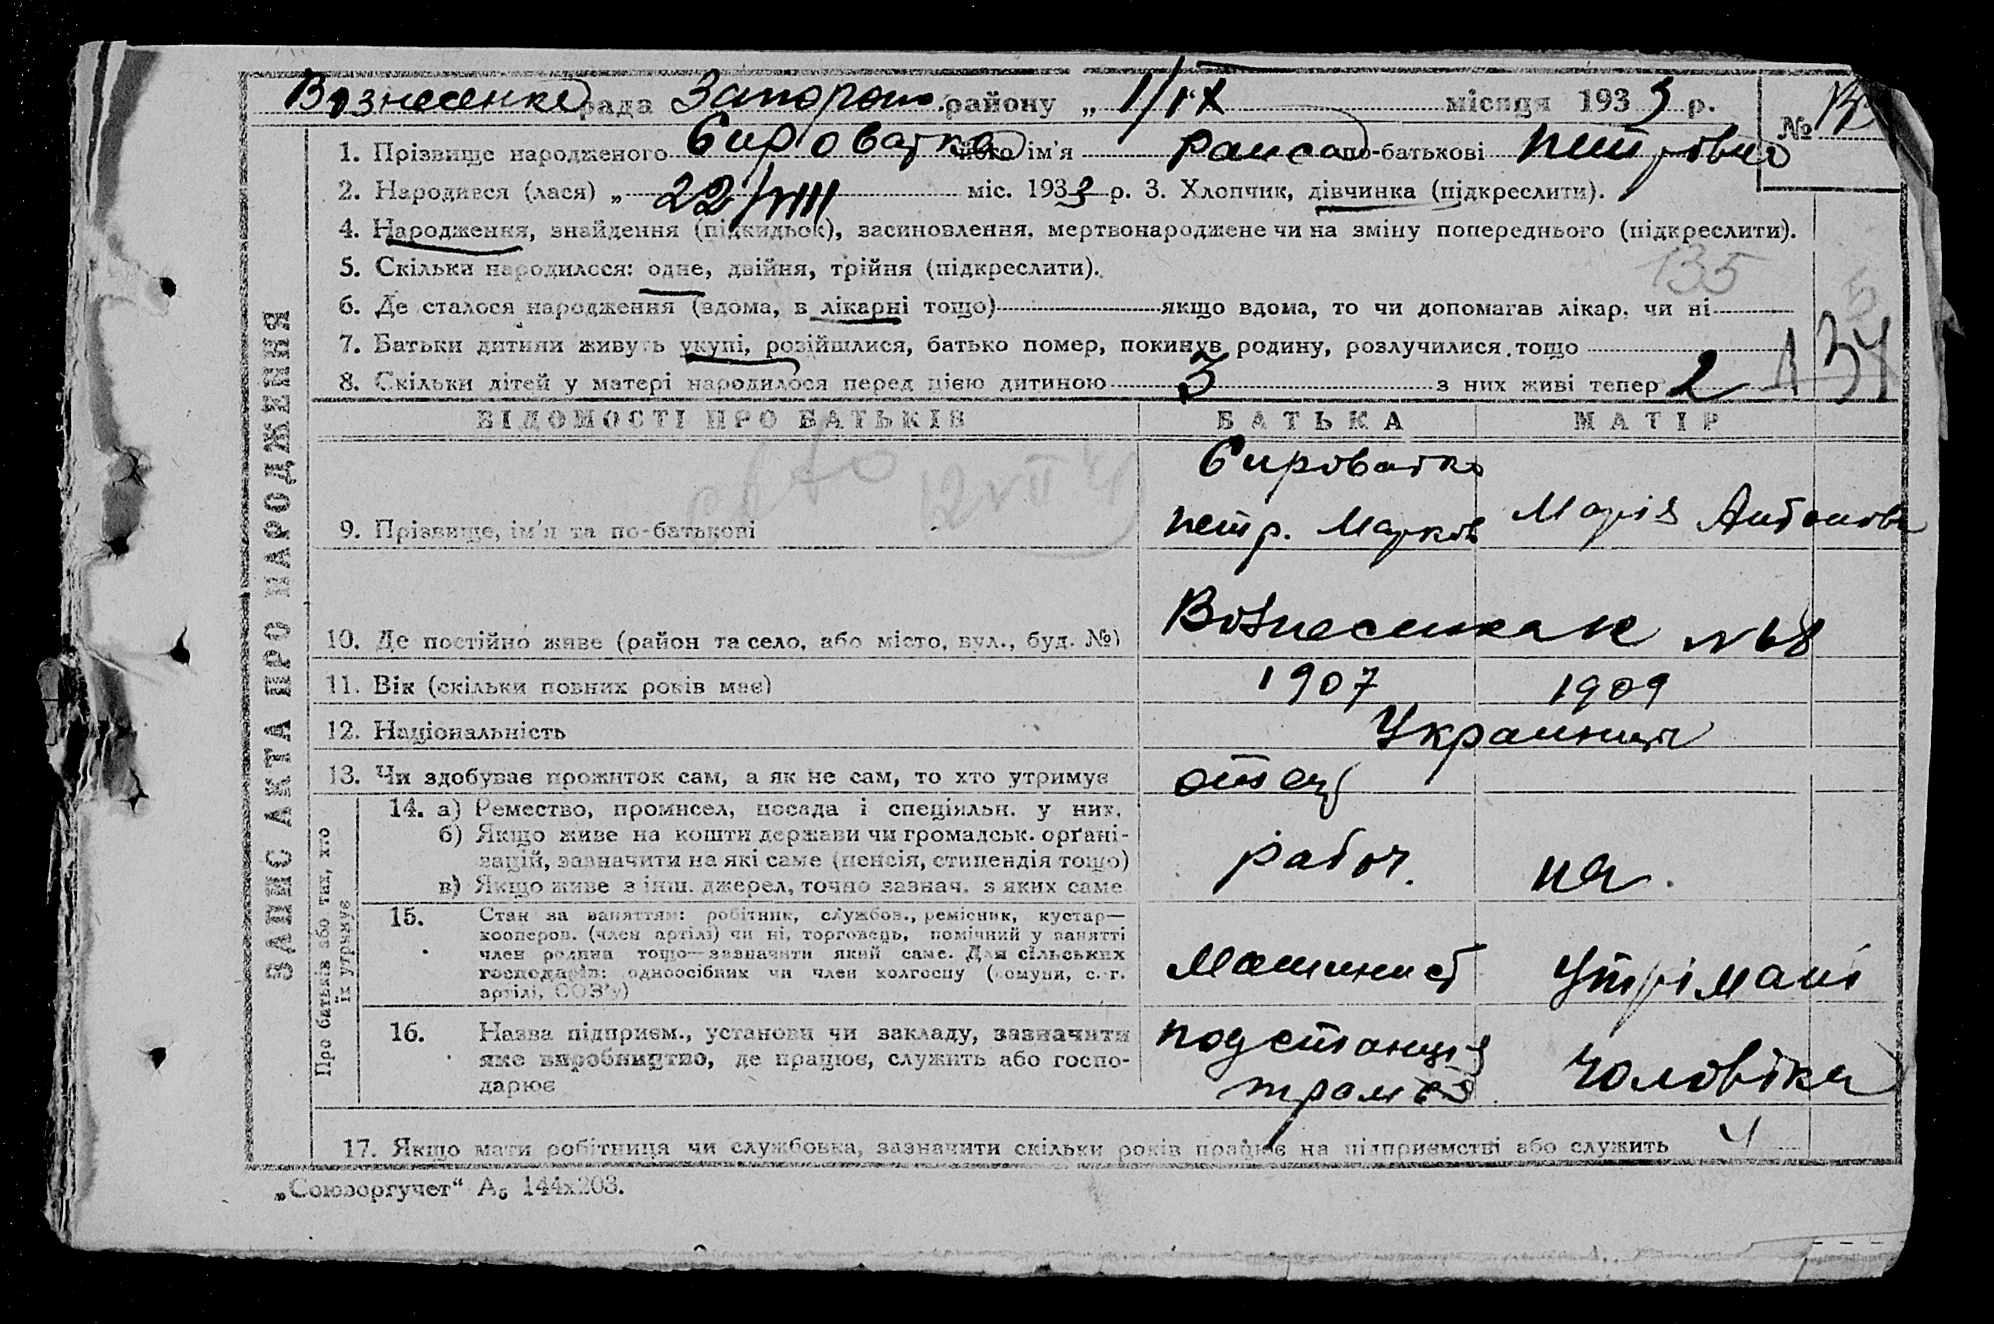 Вознесенка рада Запорож. району „ 1/IX місяця 1933 р.
№
1. Прізвище народженого Сироватка його ім'я Раиса по-батькові Петровна
2. Народився (лася) „ 22/VIII міс. 1933 р. 3. Хлопчик, дівчинка (підкреслити).
4. Народження, знайдення (підкидьок), засиновлення, мертвонароджене чи на зміну попереднього (підкреслити).
5. Скільки народилося: одне, двійня, трійня (підкреслити).
135
6. Де сталося народження (вдома, в лікарні тощо) якщо вдома, то чи допомагав лікар, чи ні
7. Батьки дитини живуть укупі, розійшлися, батько помер, покинув родину, розлучилися тощо
134
8. Скільки дітей у матері народилося перед цією дитиною 3 з них живі тепер 2
ЗАПИС АКТА ПРО НАРОДЖЕННЯ
ВІДОМОСТІ ПРО БАТЬКІВ БАТЬКА МАТІР
9. Прізвище, ім'я та по-батькові
Сироватка
Петр. Марков
Марія Антонова
10. Де постійно живе (район та село, або місто, вул., буд. №)
№ 68
11. Вік (скільки повних років має) 1907 1909
12. Національність Украинци
13. Чи здобуває прожиток сам, а як не сам, то хто утримує отец
Про батьків або тих, хто їх утримує
14. а) Ремество, промисел, посада і спеціяльн. у них.
б) Якщо живе на кошти держави чи громадськ. орґані-
зацій, зазначити на які саме (пенсія, стипендія тощо)
в) Якщо живе з інш. джерел, точно зазнач. з яких саме
рабоч. на
15. Стан за заняттям: робітник, службов., ремісник, кустар—
кооперов. (член артілі) чи ні, торговець, помічний у занятті
член родини тощо—зазначити який саме. Для сільських
господарів: одноосібник чи член колгоспу (комуни, с.-г.
артілі, СОЗ'у)
Машинист утрімані
16. Назва підприєм., установи чи закладу, зазначити
яке виробництво, де працює, служить або госпо-
дарює
подстанция
трамв
чоловіка
17. Якщо мати робітниця чи службовка, зазначити скільки років працює на підприємстві або служить
„Союзоргучет“ А₅ 144х203.